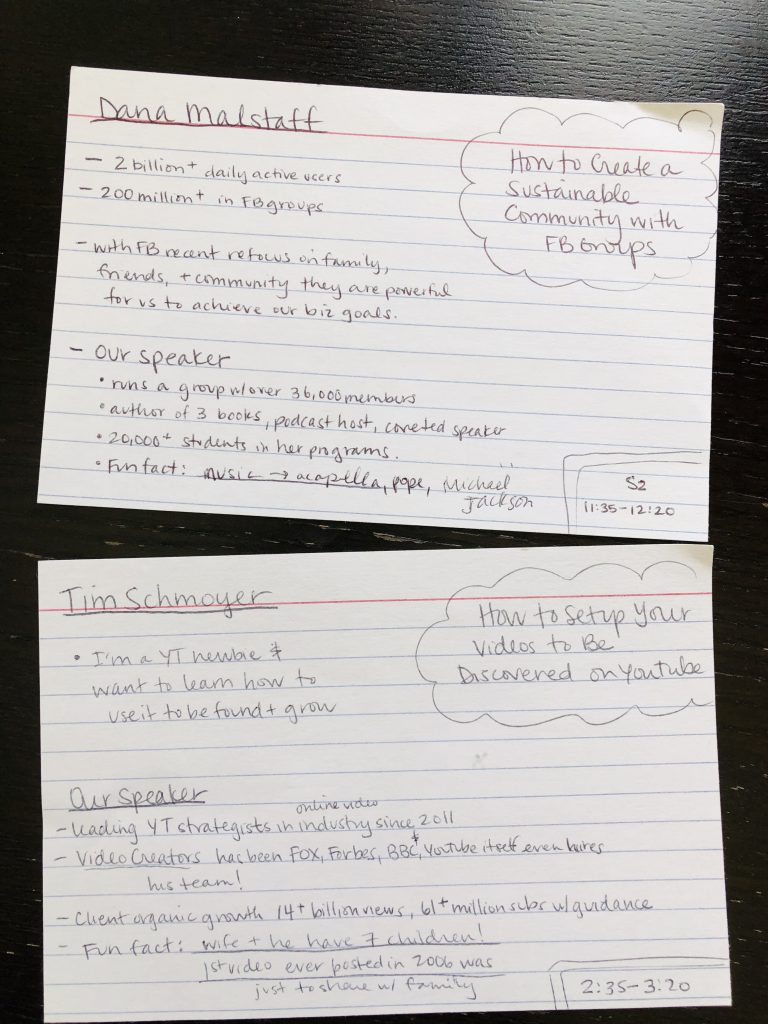 Dana Malstaff
How to Create a
Sustainable
Community with
FB Groups
- 2 billion+ daily active users
- 200 million+ in FB groups
- with FB recent refocus on family,
friends, + community they are powerful
for us to achieve our biz goals.
- our speaker
• runs a group w/over 36,000 members
• author of 3 books, podcast host, coveted speaker
• 20,000+ students in her programs.
• Fun fact: music → acapella, pope, Michael
Jackson
S2
11:35-12:20
Tim Schmoyer
How to Setup Your
Videos to Be
Discovered on Youtube
• I'm a YT newbie &
want to learn how to
use it to be found + grow
Our speaker
online video
- leading YT strategists in industry since 2011
- Video Creators has been FOX, Forbes, BBC & Youtube itself even hires
his team!
- Client organic growth 14+ billion views, 61+ million subs w/guidance
- Fun fact: wife + he have 7 children!
1st video ever posted in 2006 was
just to share w/ family
2:35-3:20